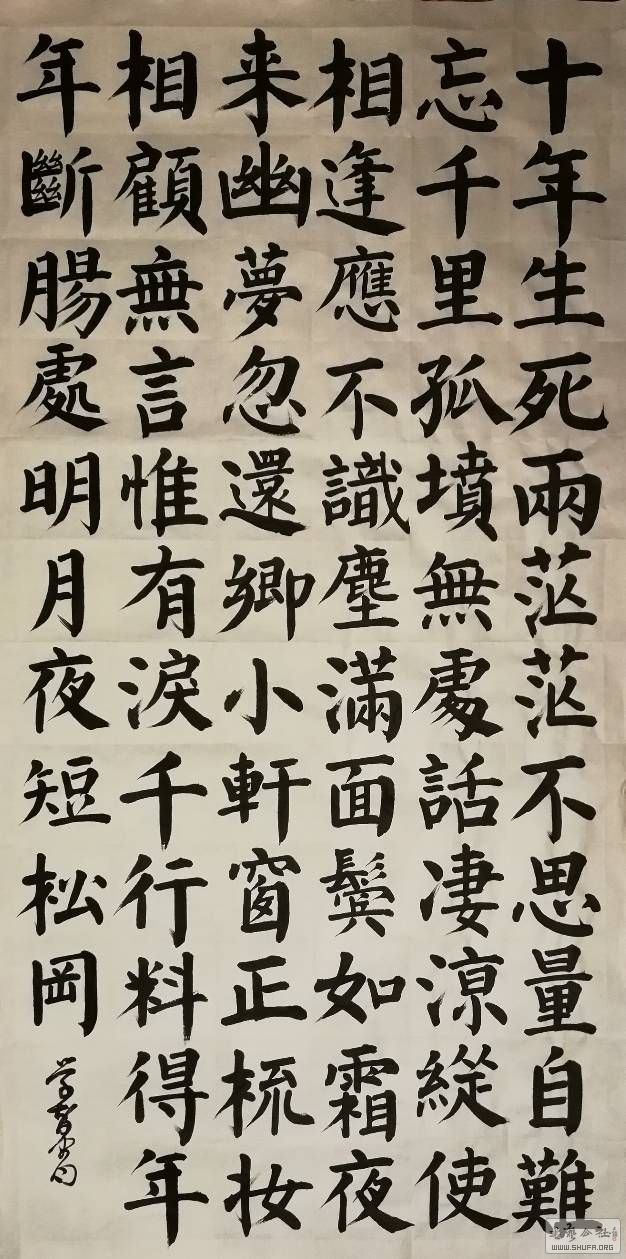 十年生死兩茫茫不思量自難
忘千里孤墳無處話凄涼縱使
相逢應不識塵滿面鬓如霜夜
来幽夢忽還鄉小軒窗正梳妆
相顧無言惟有淚千行料得年
年斷腸處明月夜短松岡
WWW.SHUFA.ORG